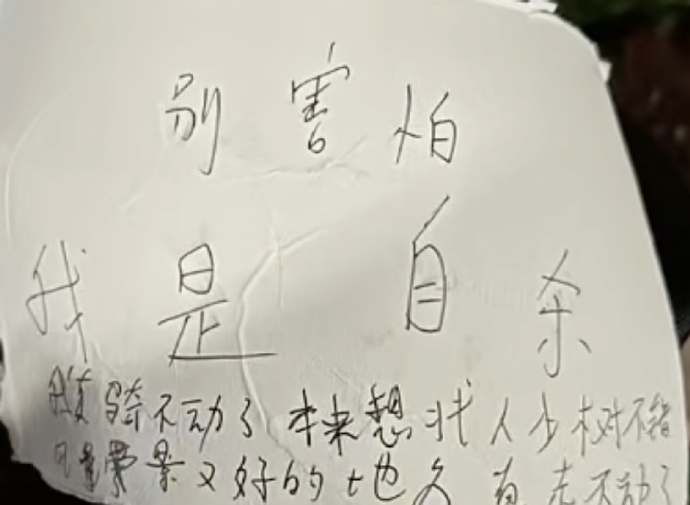 别害怕
我是自杀
我真骑不动了 本来想找人少树不错
风景又好的地久 真走不动了